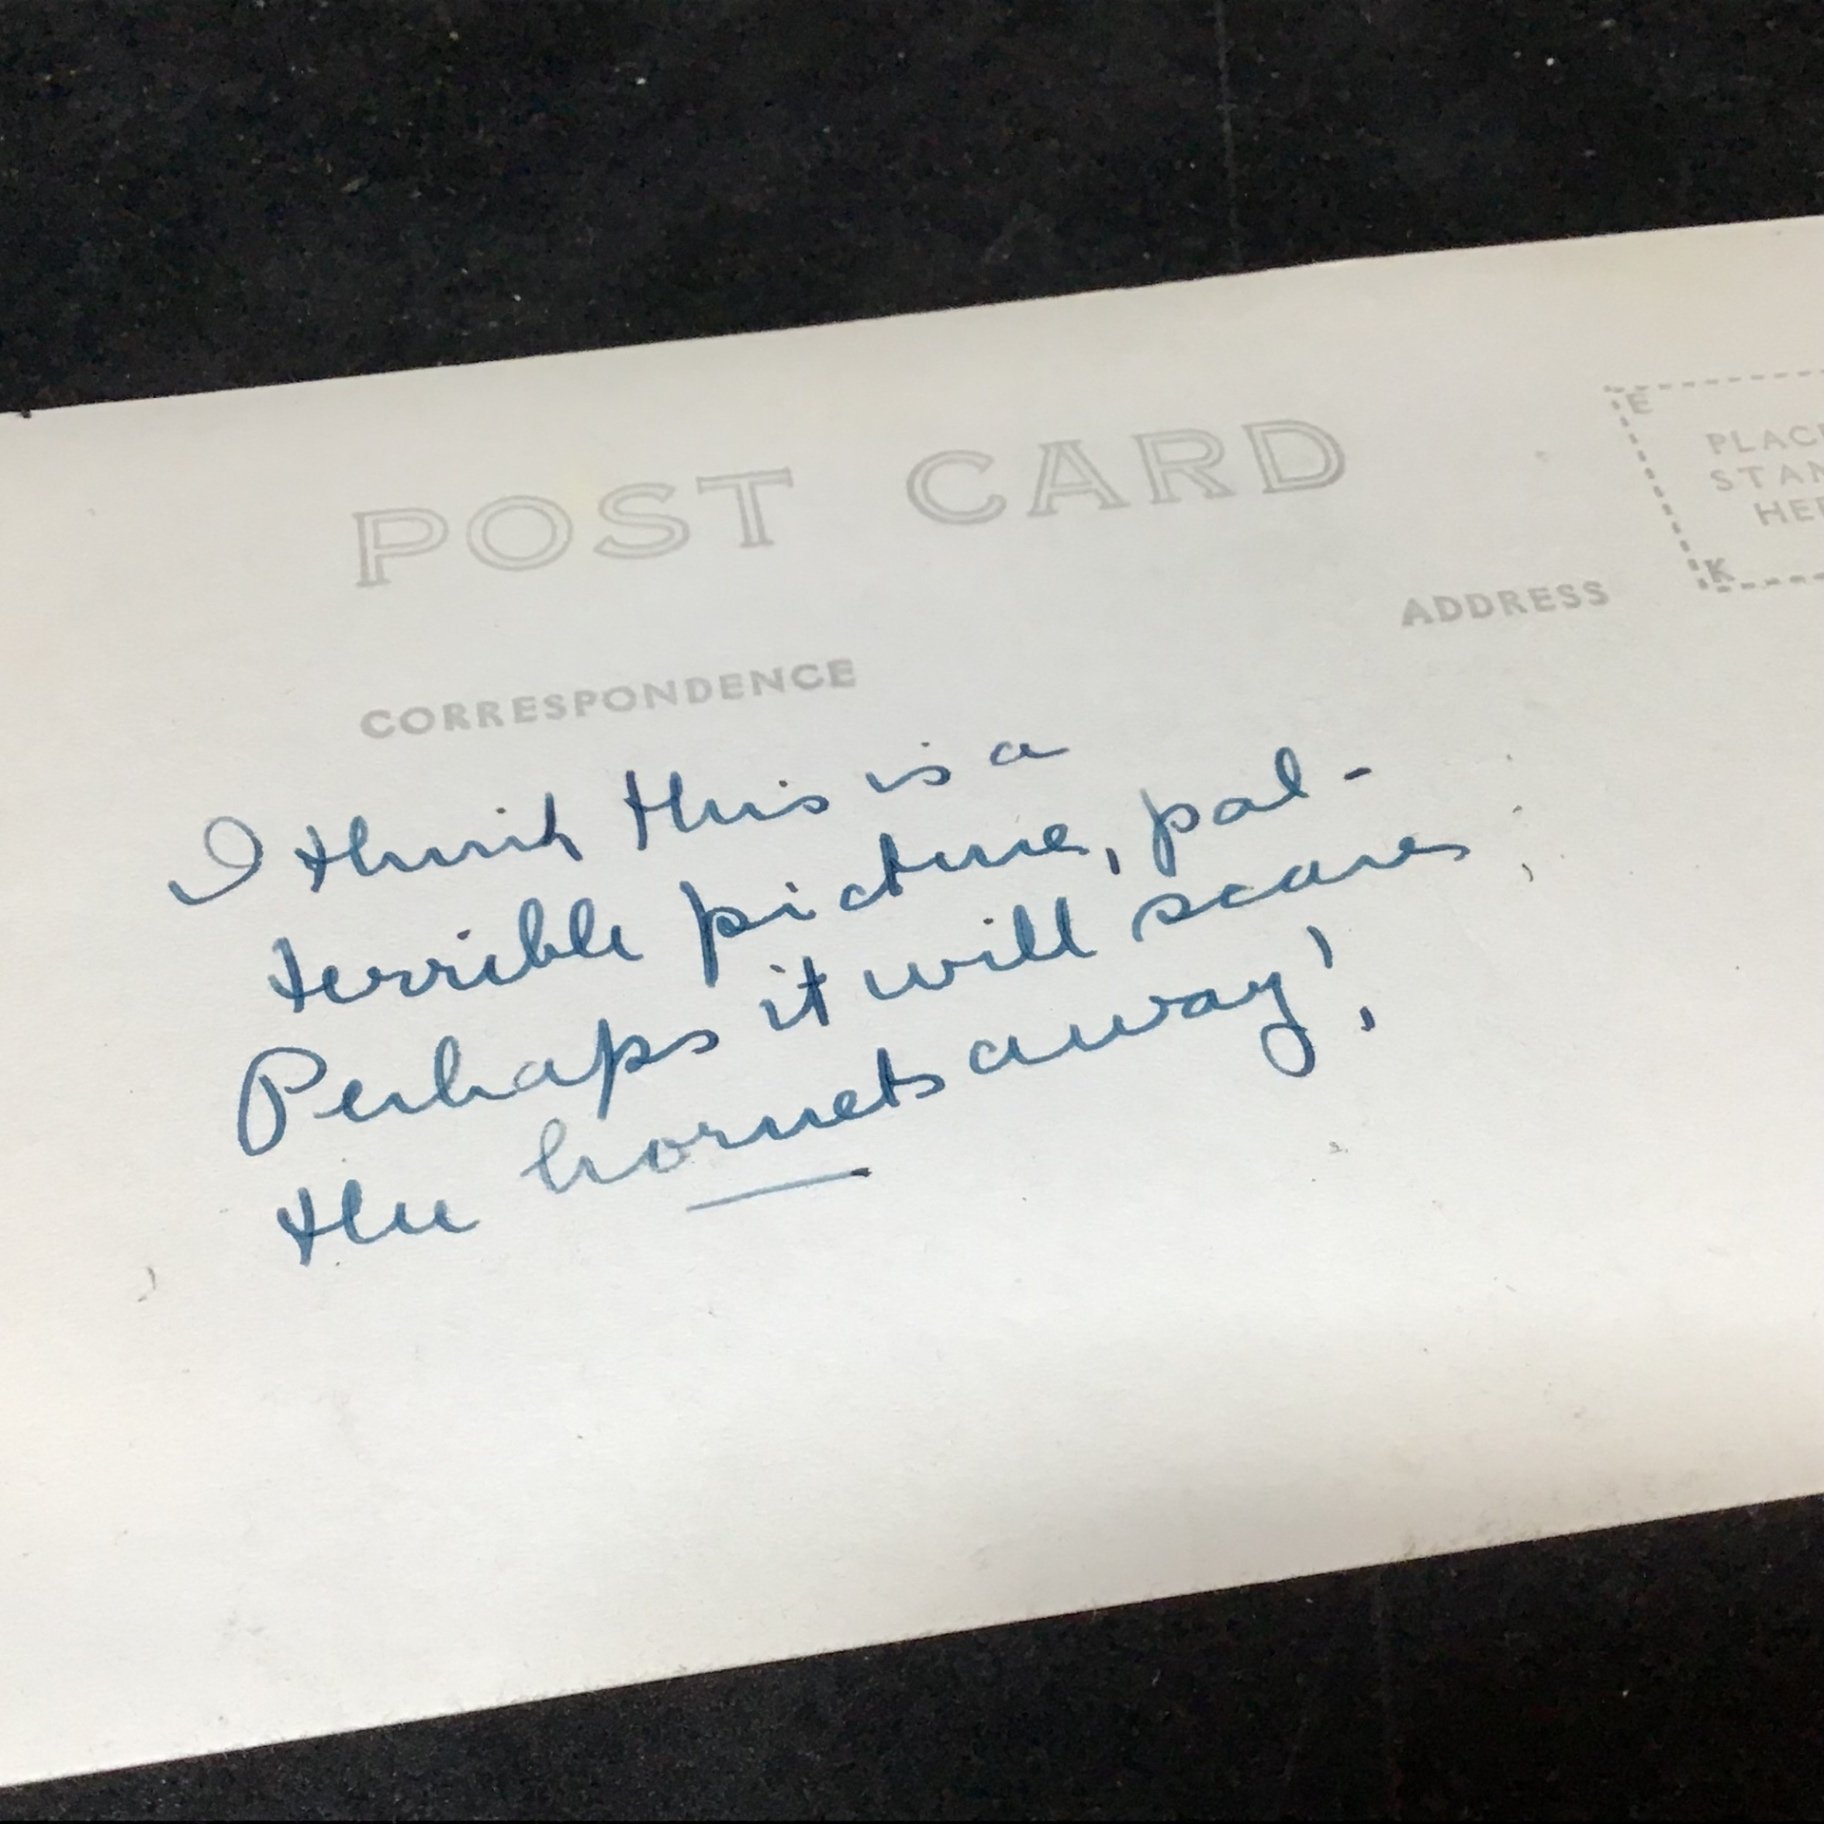 POST CARD
E
PLACE
STAM
HER
K
ADDRESS
CORRESPONDENCE
I think this is a
terrible picture, pal-
Perhaps it will scare
the hornets away!